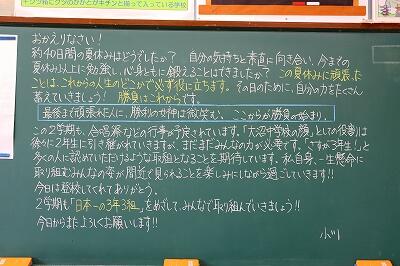 トップ校にクツのかかとがキチンと揃って入っている学校
おかえりなさい！
約40日間の夏休みはどうでしたか？ 自分の気持ちと素直に向き合い、今までの
夏休み以上に勉強し、心身ともに鍛えることはできましたか？ この夏休みに頑張った
ことは、これからの人生のどこかで必ず役に立ちます。その日のために、自分の力をたくさん
蓄えていきましょう！ 勝負はこれからです。
最後まで頑張れた人に、勝利の女神は微笑む。ここからが勝負の始まり。
この2学期も、合唱祭などの行事が予定されています。「大沼中学校の顔」としての役割は
徐々に2年生に引き継がれていきますが、まだまだみんなの力が必要です。「さすが3年生！」と
多くの人に認めていただけるような取組となることを期待しています。私自身、一生懸命に
取り組むみんなの姿が間近で見られることを楽しみにしながら過ごしていきます!!
今日は登校してくれてありがとう。
2学期も「日本一の3年3組」をめざして、みんなで取り組んでいきましょう!!
今日からまたよろしくお願いします!!